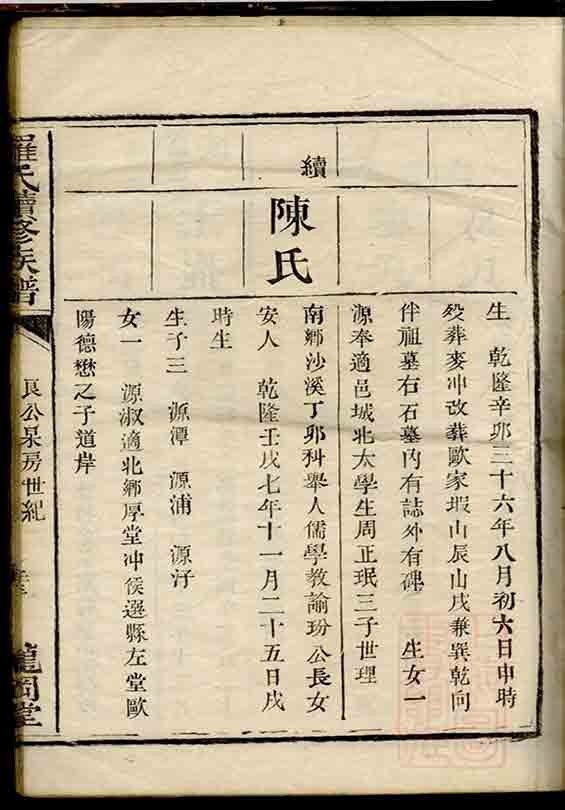 生 乾隆辛卯三十六年八月初六日申時
歿葬麥冲改葬歐家塅山辰山戌兼巽乾向
伴祖墓右石墓内有誌外有碑 生女一
源奉適邑城北太學生周正珉三子世理
續
陳氏
南鄉沙溪丁卯科舉人儒學教諭玢公長女
安人 乾隆壬戌七年十一月二十五日戌
時生
生子三 源潭 源浦 源汙
女一 源淑適北鄉厚堂冲候選縣左堂歐
陽德懋之子道岸
羅氏續修族譜
良公泉房世紀
龍岡堂